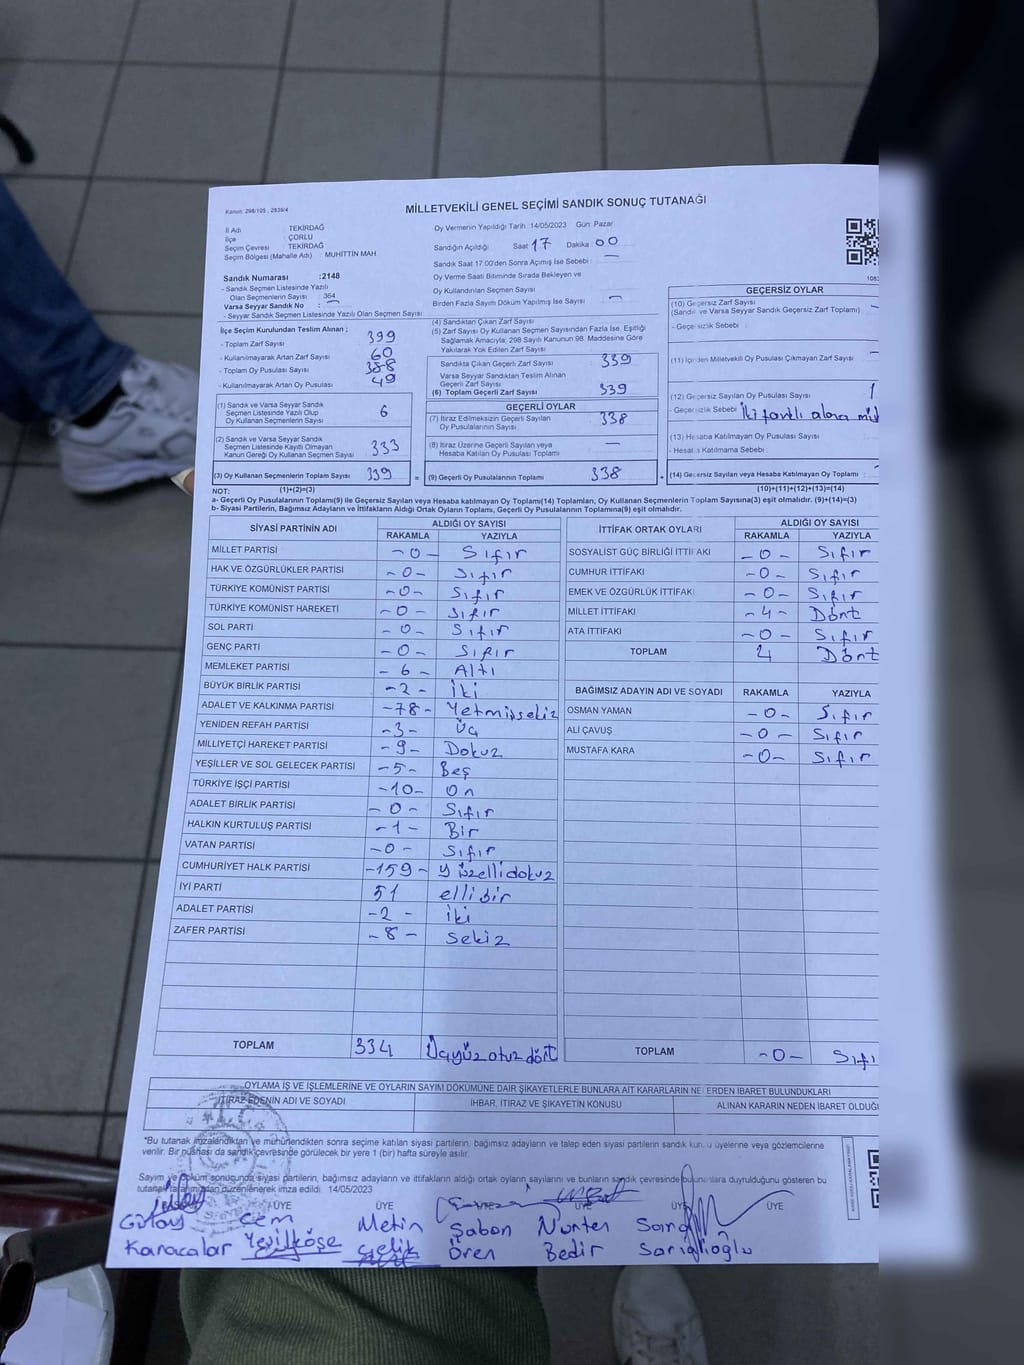 Kanun: 298/105 , 2839/4
MİLLETVEKİLİ GENEL SEÇİMİ SANDIK SONUÇ TUTANAĞI
İl Adı TEKİRDAĞ
İlçe ÇORLU
Seçim Çevresi TEKİRDAĞ
Seçim Bölgesi (Mahalle Adı) MUHITTIN MAH
Oy Vermenin Yapıldığı Tarih 14/05/2023 Gün Pazar
Sandığın Açıldığı Saat 17 Dakika 00
Sandık Saat 17:00'den Sonra Açımış İse Sebebi :
Oy Verme Saati Bitiminde Sırada Bekleyen ve
Oy Kullandırılan Seçmen Sayısı
Birden Fazla Sayım Döküm Yapılmış İse Sayısı :
Sandık Numarası : 2148
- Sandık Seçmen Listesinde Yazılı
Olan Seçmenlerin Sayısı : 364
Varsa Seyyar Sandık No
- Seyyar Sandık Seçmen Listesinde Yazılı Olan Seçmen Sayısı
İlçe Seçim Kurulundan Teslim Alınan ;
- Toplam Zarf Sayısı 399
- Kullanılmayarak Artan Zarf Sayısı 60
- Toplam Oy Pusulası Sayısı 388
- Kullanılmayarak Artan Oy Pusulası 49
(1) Sandık ve Varsa Seyyar Sandık
Seçmen Listesinde Yazılı Olup
Oy Kullanan Seçmenlerin Sayısı 6
(2) Sandık ve Varsa Seyyar Sandık
Seçmen Listesinde Kayıtlı Olmayan
Kanun Gereği Oy Kullanan Seçmen Sayısı 333
(3) Oy Kullanan Seçmenlerin Toplam Sayısı 339 =
(4) Sandıktan Çıkan Zarf Sayısı
(5) Zarf Sayısı Oy Kullanan Seçmen Sayısından Fazla İse, Eşitliği
Sağlamak Amacıyla; 298 Sayılı Kanunun 98. Maddesine Göre
Yakılarak Yok Edilen Zarf Sayısı
Sandıkta Çıkan Geçerli Zarf Sayısı 339
Varsa Seyyar Sandıktan Teslim Alınan
Geçerli Zarf Sayısı
(6) Toplam Geçerli Zarf Sayısı 339
GEÇERLİ OYLAR
(7) İtiraz Edilmeksizin Geçerli Sayılan
Oy Pusulasının Sayısı 338
(8) İtiraz Üzerine Geçerli Sayılan veya
Hesaba Katılan Oy Pusulası Toplamı —
(9) Geçerli Oy Pusulalarının Toplamı 338 +
GEÇERSİZ OYLAR
(10) Geçersiz Zarf Sayısı
(Sandık ve Varsa Seyyar Sandık Geçersiz Zarf Toplamı)
- Geçersizlik Sebebi :
(11) İçinden Milletvekili Oy Pusulası Çıkmayan Zarf Sayısı
(12) Geçersiz Sayılan Oy Pusulası Sayısı 1
- Geçersizlik Sebebi İki farklı alana
(13) Hesaba Katılmayan Oy Pusulası Sayısı
- Hesaba Katılmama Sebebi :
(14) Geçersiz Sayılan veya Hesaba Katılmayan Oy Toplamı :
NOT: (1)+(2)=(3) (10)+(11)+(12)+(13)=(14)
a- Geçerli Oy Pusulalarının Toplamı(9) ile Geçersiz Sayılan veya Hesaba katılmayan Oy Toplamı(14) Toplamları, Oy Kullanan Seçmenlerin Toplam Sayısına(3) eşit olmalıdır. (9)+(14)=(3)
b- Siyasi Partilerin, Bağımsız Adayların ve İttifakların Aldığı Ortak Oyların Toplamı, Geçerli Oy Pusulalarının Toplamına(9) eşit olmalıdır.
SİYASİ PARTİNİN ADI ALDIĞI OY SAYISI
RAKAMLA YAZIYLA
MİLLET PARTİSİ -0- Sıfır
HAK VE ÖZGÜRLÜKLER PARTİSİ -0- Sıfır
TÜRKİYE KOMÜNİST PARTİSİ -0- Sıfır
TÜRKİYE KOMÜNİST HAREKETİ -0- Sıfır
SOL PARTİ -0- Sıfır
GENÇ PARTİ -0- Sıfır
MEMLEKET PARTİSİ -6- Altı
BÜYÜK BİRLİK PARTİSİ -2- İki
ADALET VE KALKINMA PARTİSİ -78- Yetmişsekiz
YENİDEN REFAH PARTİSİ -3- Üç
MİLLİYETÇİ HAREKET PARTİSİ -9- Dokuz
YEŞİLLER VE SOL GELECEK PARTİSİ -5- Beş
TÜRKİYE İŞÇİ PARTİSİ -10- On
ADALET BİRLİK PARTİSİ -0- Sıfır
HALKIN KURTULUŞ PARTİSİ -1- Bir
VATAN PARTİSİ -0- Sıfır
CUMHURİYET HALK PARTİSİ -159- yüzellidokuz
İYİ PARTİ 51 ellibir
ADALET PARTİSİ -2- İki
ZAFER PARTİSİ -8- Sekiz
TOPLAM 334 Üçyüzotuzdört
İTTİFAK ORTAK OYLARI ALDIĞI OY SAYISI
RAKAMLA YAZIYLA
SOSYALİST GÜÇ BİRLİĞİ İTTİFAKI -0- Sıfır
CUMHUR İTTİFAKI -0- Sıfır
EMEK VE ÖZGÜRLÜK İTTİFAKI -0- Sıfır
MİLLET İTTİFAKI -4- Dört
ATA İTTİFAKI -0- Sıfır
TOPLAM 4 Dört
BAĞIMSIZ ADAYIN ADI VE SOYADI RAKAMLA YAZIYLA
OSMAN YAMAN -0- Sıfır
ALİ ÇAVUŞ -0- Sıfır
MUSTAFA KARA -0- Sıfır
TOPLAM -0- Sıfı
OYLAMA İŞ VE İŞLEMLERİNE VE OYLARIN SAYIM DÖKÜMÜNE DAİR ŞİKAYETLERLE BUNLARA AİT KARARLARIN NELERDEN İBARET BULUNDUKLARI
İTİRAZ EDENİN ADI VE SOYADI İHBAR, İTİRAZ VE ŞİKAYETİN KONUSU ALINAN KARARIN NEDEN İBARET OLDUĞU
"Bu tutanak imzalandıktan ve mühürlendikten sonra seçime katılan siyasi partilerin, bağımsız adayların ve talep eden siyasi partilerin sandık kurulu üyelerine veya gözlemcilerine
verilir. Bir nüshası da sandık çevresinde görülecek bir yere 1 (bir) hafta süreyle asılır.
Sayım ve döküm sonucunda siyasi partilerin, bağımsız adayların ve ittifakların aldığı ortak oyların sayılarını ve bunların sandık çevresinde bulunanlara duyrulduğunu gösteren bu
tutanak tarafımızdan düzenlenerek imza edildi. 14/05/2023
ÜYE ÜYE ÜYE ÜYE ÜYE
Gülay Cem Metin Şaban Nurten
Karacalar Yeşilköşe Çelik Ören Bedir Sarıalioğlu